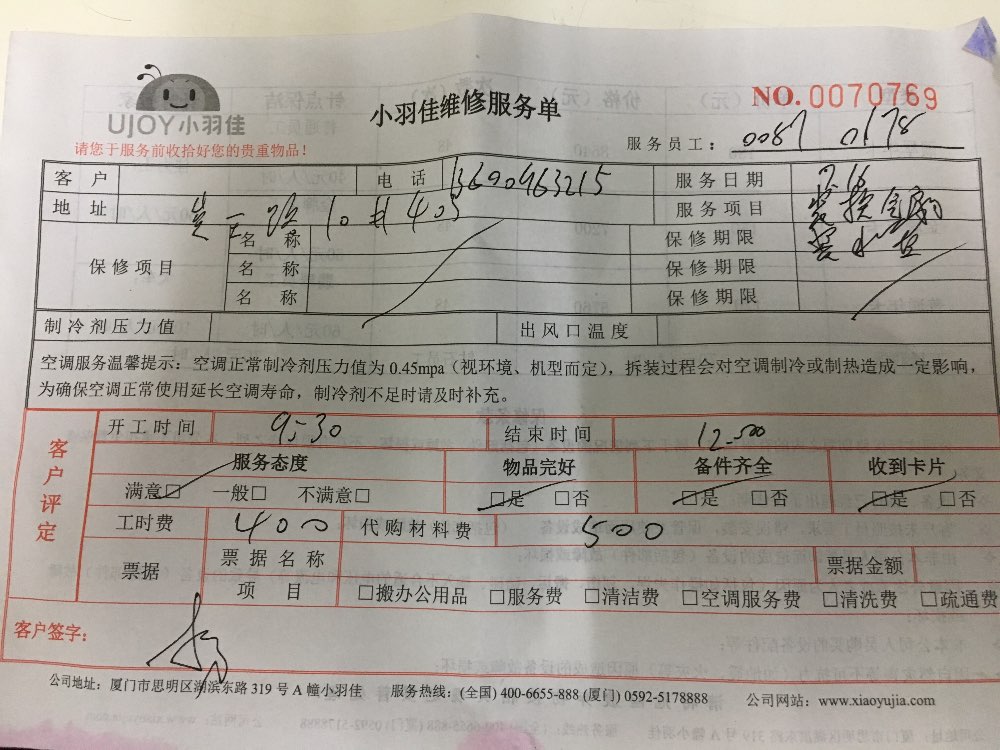 UJOY小羽佳
小羽佳维修服务单
NO.0070769
请您于服务前收拾好您的贵重物品！
服务员工： 0087 0178
客户 电话 13690963215 服务日期 7.16
地址 10# 403 服务项目 装换
保修项目 名称 保修期限
名称 保修期限
名称 保修期限
制冷剂压力值 出风口温度
空调服务温馨提示：空调正常制冷剂压力值为 0.45mpa（视环境、机型而定），拆装过程会对空调制冷或制热造成一定影响，
为确保空调正常使用延长空调寿命，制冷剂不足时请及时补充。
客户评定
开工时间 9:30 结束时间 12:00
服务态度 物品完好 备件齐全 收到卡片
满意□ 一般□ 不满意□ □是 □否 □是 □否 □是 □否
工时费 400 代购材料费 500
票据 票据名称 票据金额
项目 □搬办公用品 □服务费 □清洁费 □空调服务费 □清洗费 □疏通费
客户签字：
公司地址：厦门市思明区湖滨东路 319 号 A 幢小羽佳 服务热线：(全国) 400-6655-888 (厦门) 0592-5178888 公司网站：www.xiaoyujia.com